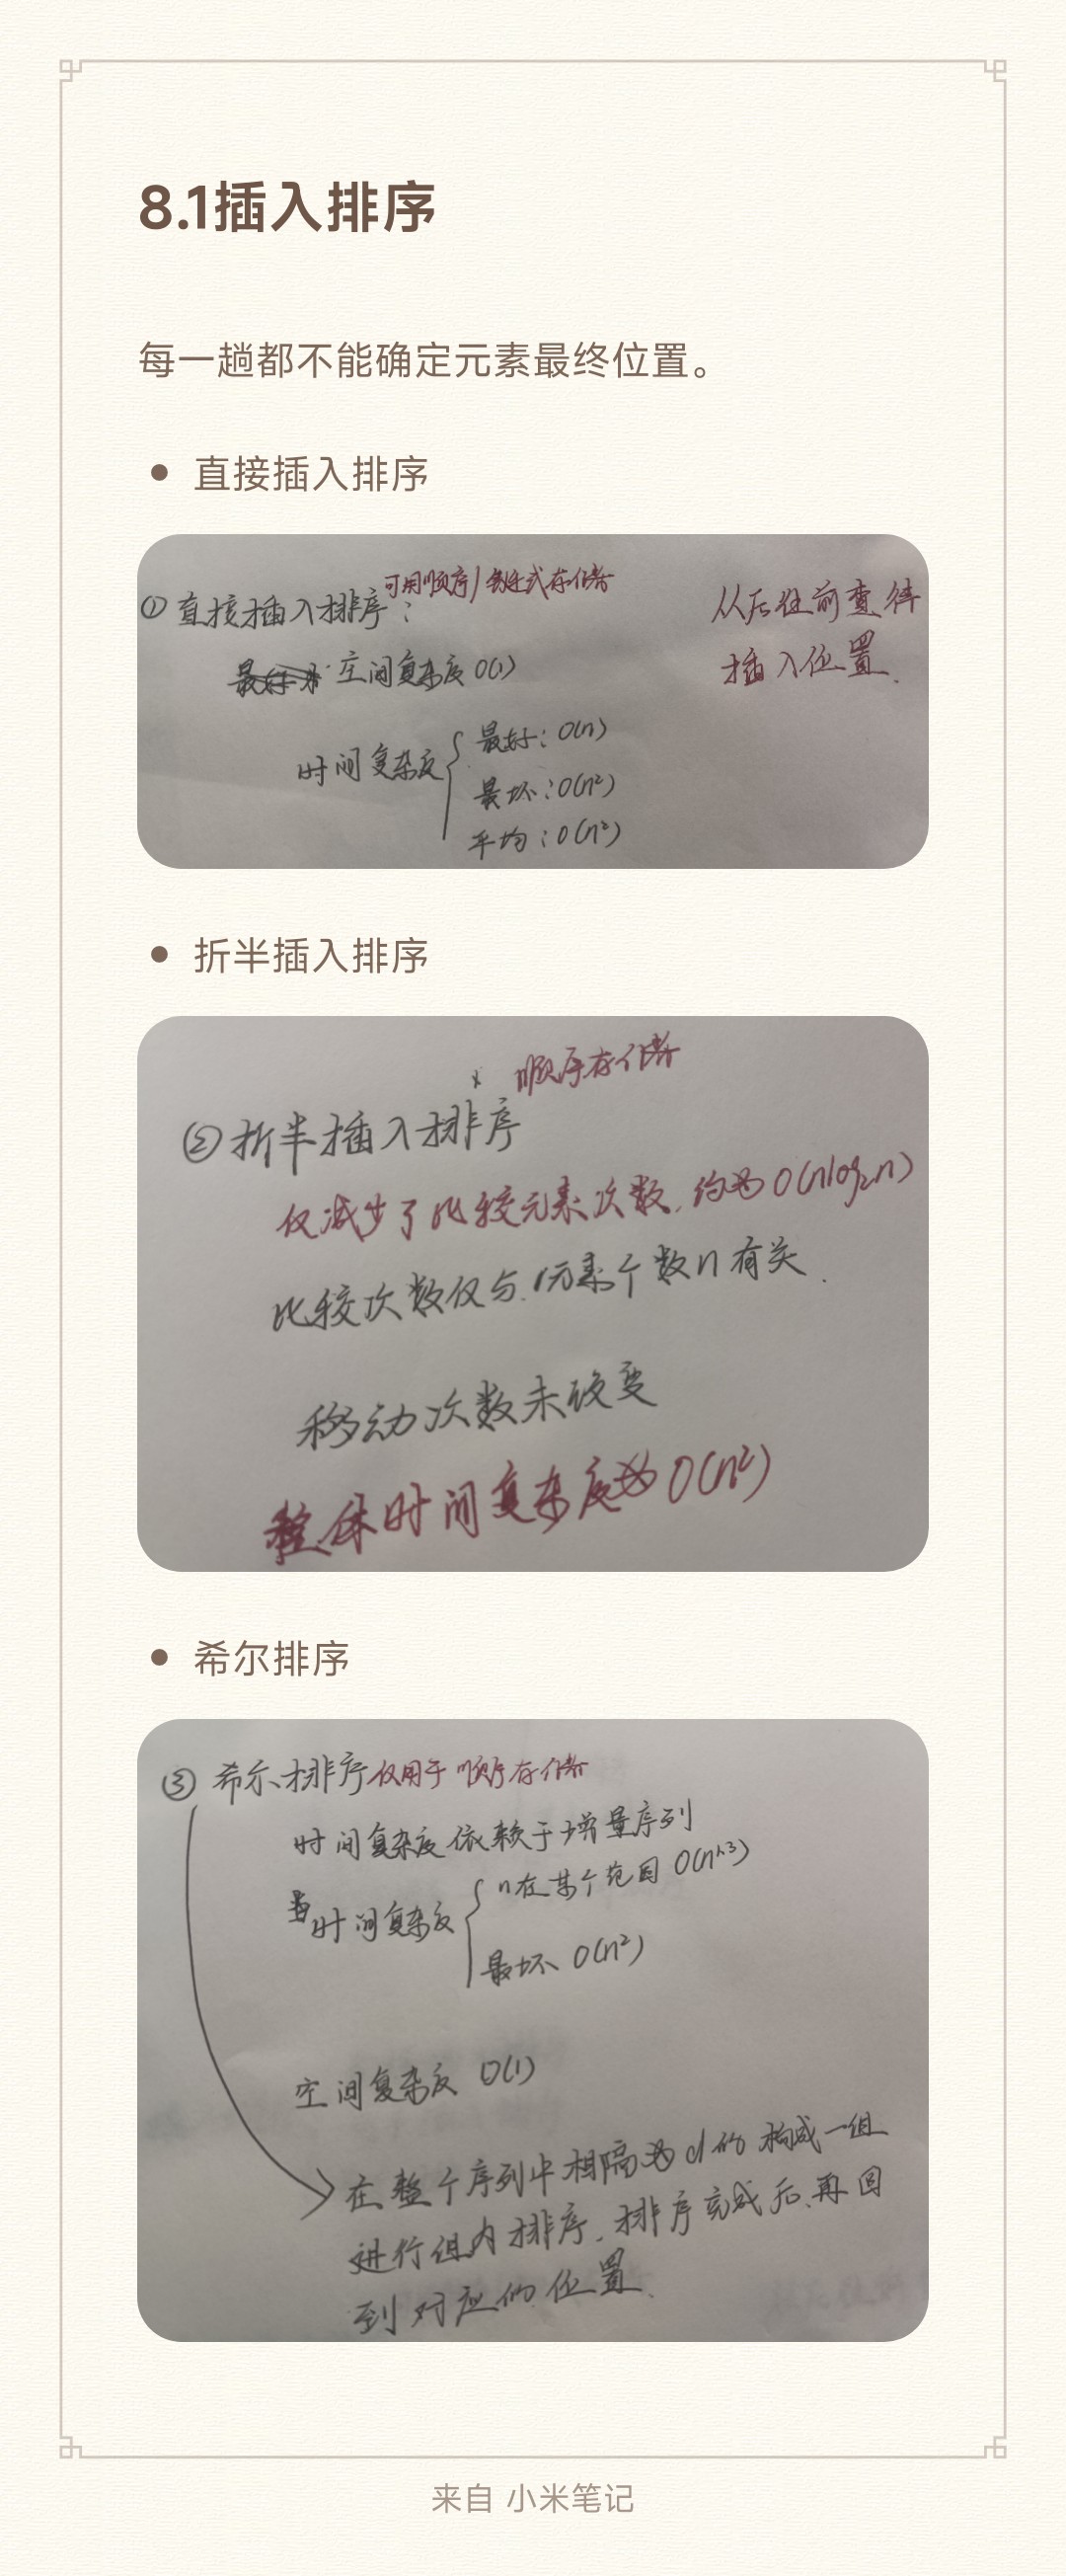 8.1插入排序
每一趟都不能确定元素最终位置。
• 直接插入排序
① 直接插入排序: 可用顺序/链式存储
从后往前查待
插入位置.
空间复杂度 O(1)
时间复杂度 { 最好: O(n)
最坏: O(n²)
平均: O(n²)
• 折半插入排序
顺序存储
② 折半插入排序
仅减少了比较元素次数, 约为 O(nlog₂n)
比较次数仅与元素个数n有关.
移动次数未改变
整体时间复杂度为 O(n²)
• 希尔排序
③ 希尔排序 仅用于顺序存储
时间复杂度依赖于增量序列
时间复杂度 { n在某个范围 O(n^1.3)
最坏 O(n²)
空间复杂度 O(1)
在整个序列中相隔为d的构成一组
进行组内排序, 排序完成后, 再回
到对应的位置.
来自 小米笔记